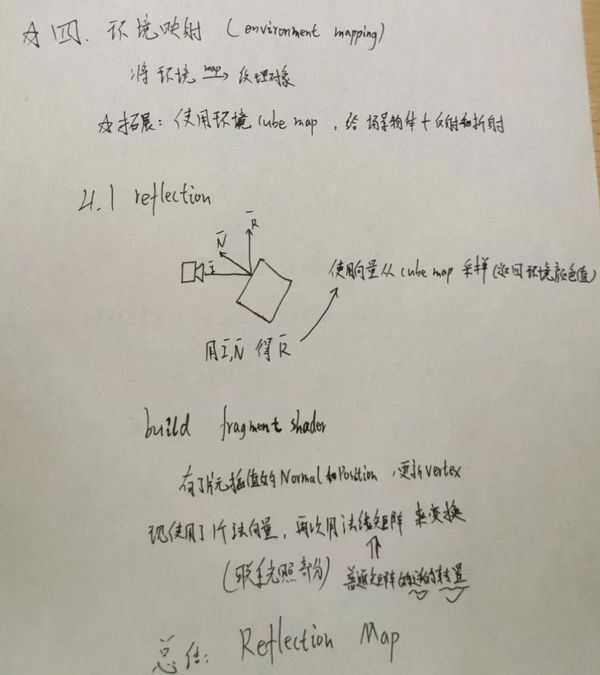 ☆四. 环境映射 (environment mapping)
将环境 map→ 纹理对象
☆拓展: 使用环境 cube map, 给场景物体+反射和折射
4.1 reflection
R
N
I
使用向量从 cube map 采样 (返回环境颜色值)
用I,N 得 R
build fragment shader
有了片元插值的Normal和Position, 更新vertex
现使用了1个法向量, 再次用法线矩阵 来变换
(联系光照部分) 普通矩阵的逆的转置
总结: Reflection Map